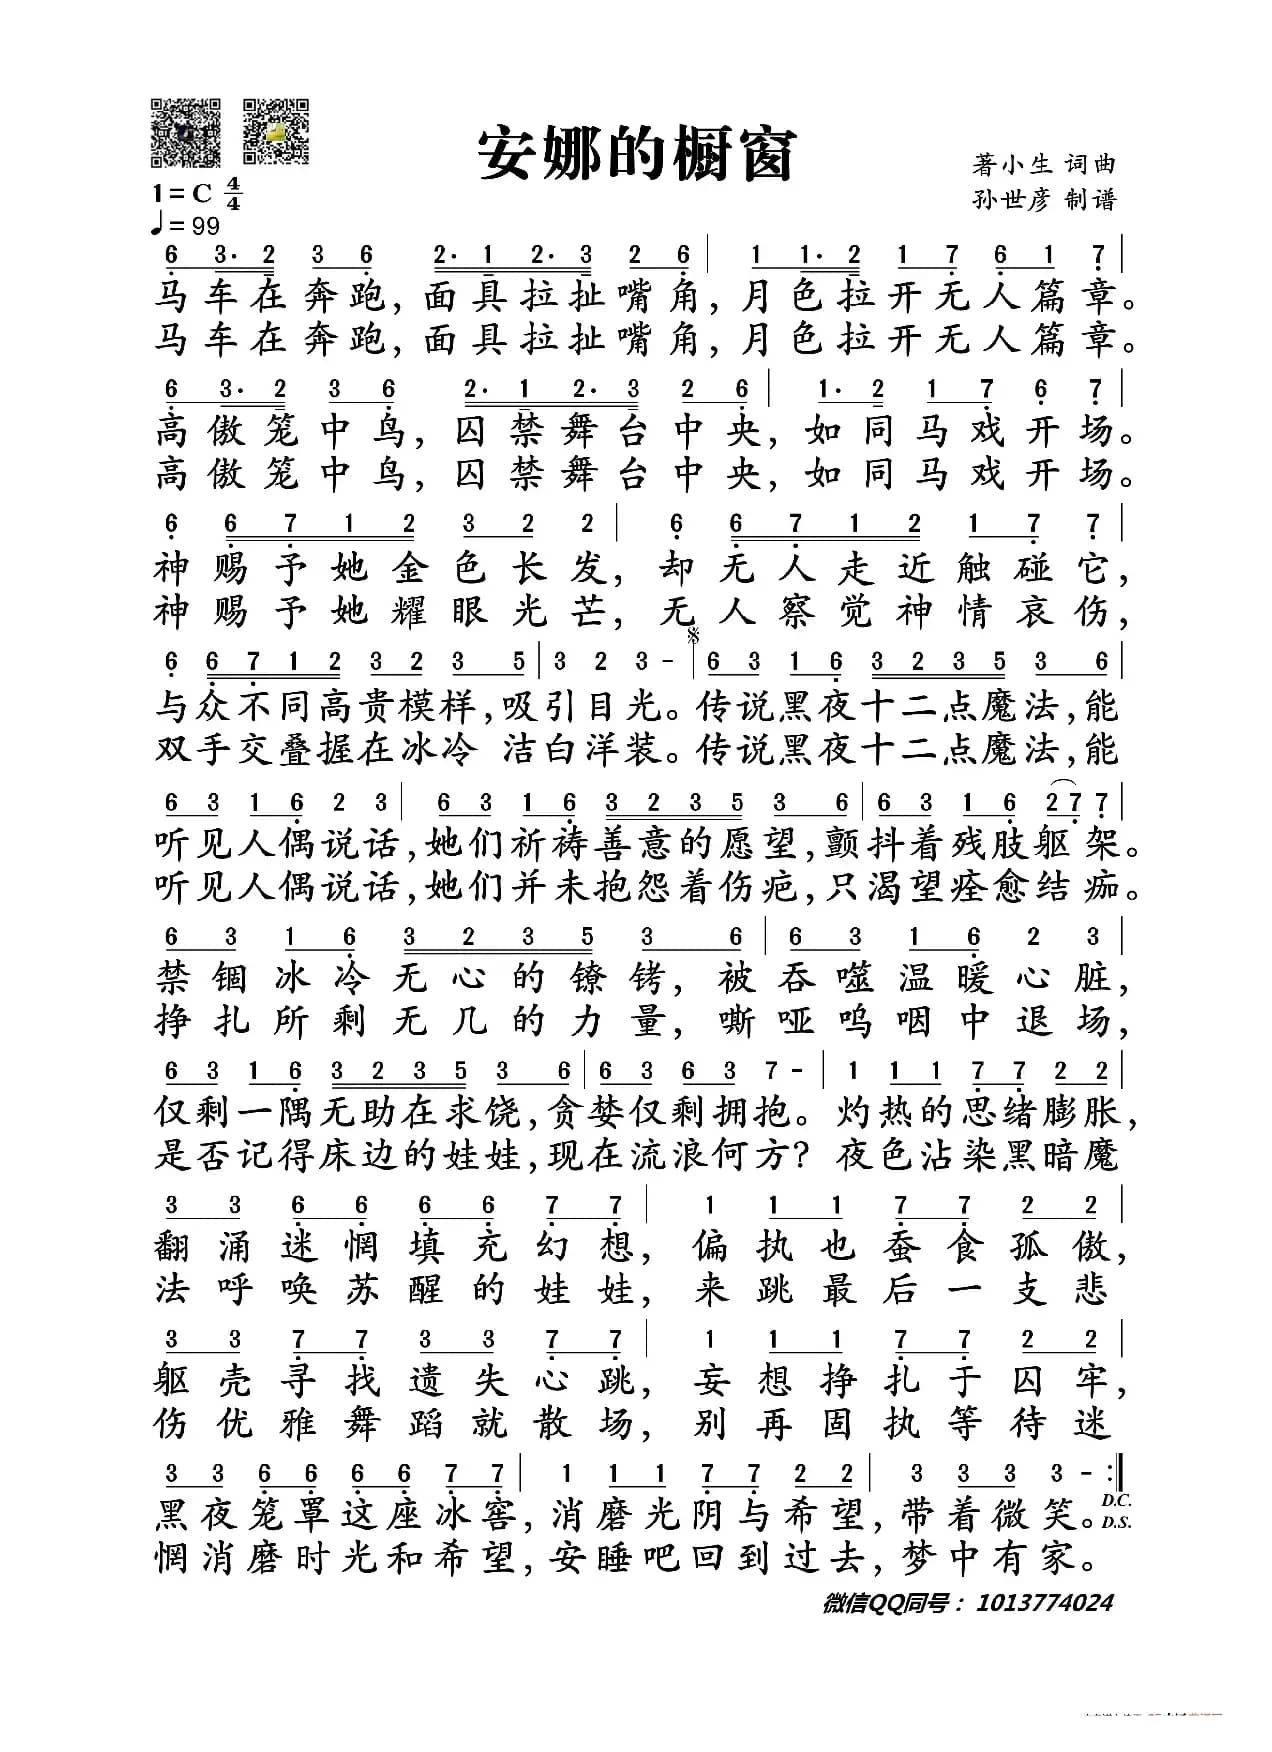 安娜的橱窗
著小生 词曲
孙世彦 制谱
1=C 4/4
♩=99
6 3· 2 3 6 2· 1 2· 3 2 6 | 1 1· 2 1 7 6 1 7 |
马车在奔跑，面具拉扯嘴角，月色拉开无人篇章。
马车在奔跑，面具拉扯嘴角，月色拉开无人篇章。
6 3· 2 3 6 2· 1 2· 3 2 6 | 1· 2 1 7 6 7 |
高傲笼中鸟，囚禁舞台中央，如同马戏开场。
高傲笼中鸟，囚禁舞台中央，如同马戏开场。
6 6 7 1 2 3 2 2 | 6 6 7 1 2 1 7 7 |
神赐予她金色长发，却无人走近触碰它，
神赐予她耀眼光芒，无人察觉神情哀伤，
6 6 7 1 2 3 2 3 5 | 3 2 3 - | 6 3 1 6 3 2 3 5 3 6 |
与众不同高贵模样，吸引目光。传说黑夜十二点魔法，能
双手交叠握在冰冷 洁白洋装。传说黑夜十二点魔法，能
6 3 1 6 2 3 | 6 3 1 6 3 2 3 5 3 6 | 6 3 1 6 2 7 7 |
听见人偶说话，她们祈祷善意的愿望，颤抖着残肢躯架。
听见人偶说话，她们并未抱怨着伤疤，只渴望痊愈结痂。
6 3 1 6 3 2 3 5 3 6 | 6 3 1 6 2 3 |
禁锢冰冷无心的镣铐，被吞噬温暖心脏，
挣扎所剩无几的力量，嘶哑呜咽中退场，
6 3 1 6 3 2 3 5 3 6 | 6 3 6 3 7 - | 1 1 1 7 7 2 2 |
仅剩一隅无助在求饶，贪婪仅剩拥抱。灼热的思绪膨胀，
是否记得床边的娃娃，现在流浪何方？夜色沾染黑暗魔
3 3 6 6 6 6 7 7 | 1 1 1 7 7 2 2 |
翻涌迷惘填充幻想，偏执也蚕食孤傲，
法呼唤苏醒的娃娃，来跳最后一支悲
3 3 7 7 3 3 7 7 | 1 1 1 7 7 2 2 |
躯壳寻找遗失心跳，妄想挣扎于囚牢，
伤优雅舞蹈就散场，别再固执等待迷
3 3 6 6 6 6 7 7 | 1 1 1 7 7 2 2 | 3 3 3 3 - :|
黑夜笼罩这座冰窖，消磨光阴与希望，带着微笑。D.C. D.S.
惘消磨时光和希望，安睡吧回到过去，梦中有家。
微信QQ同号：1013774024